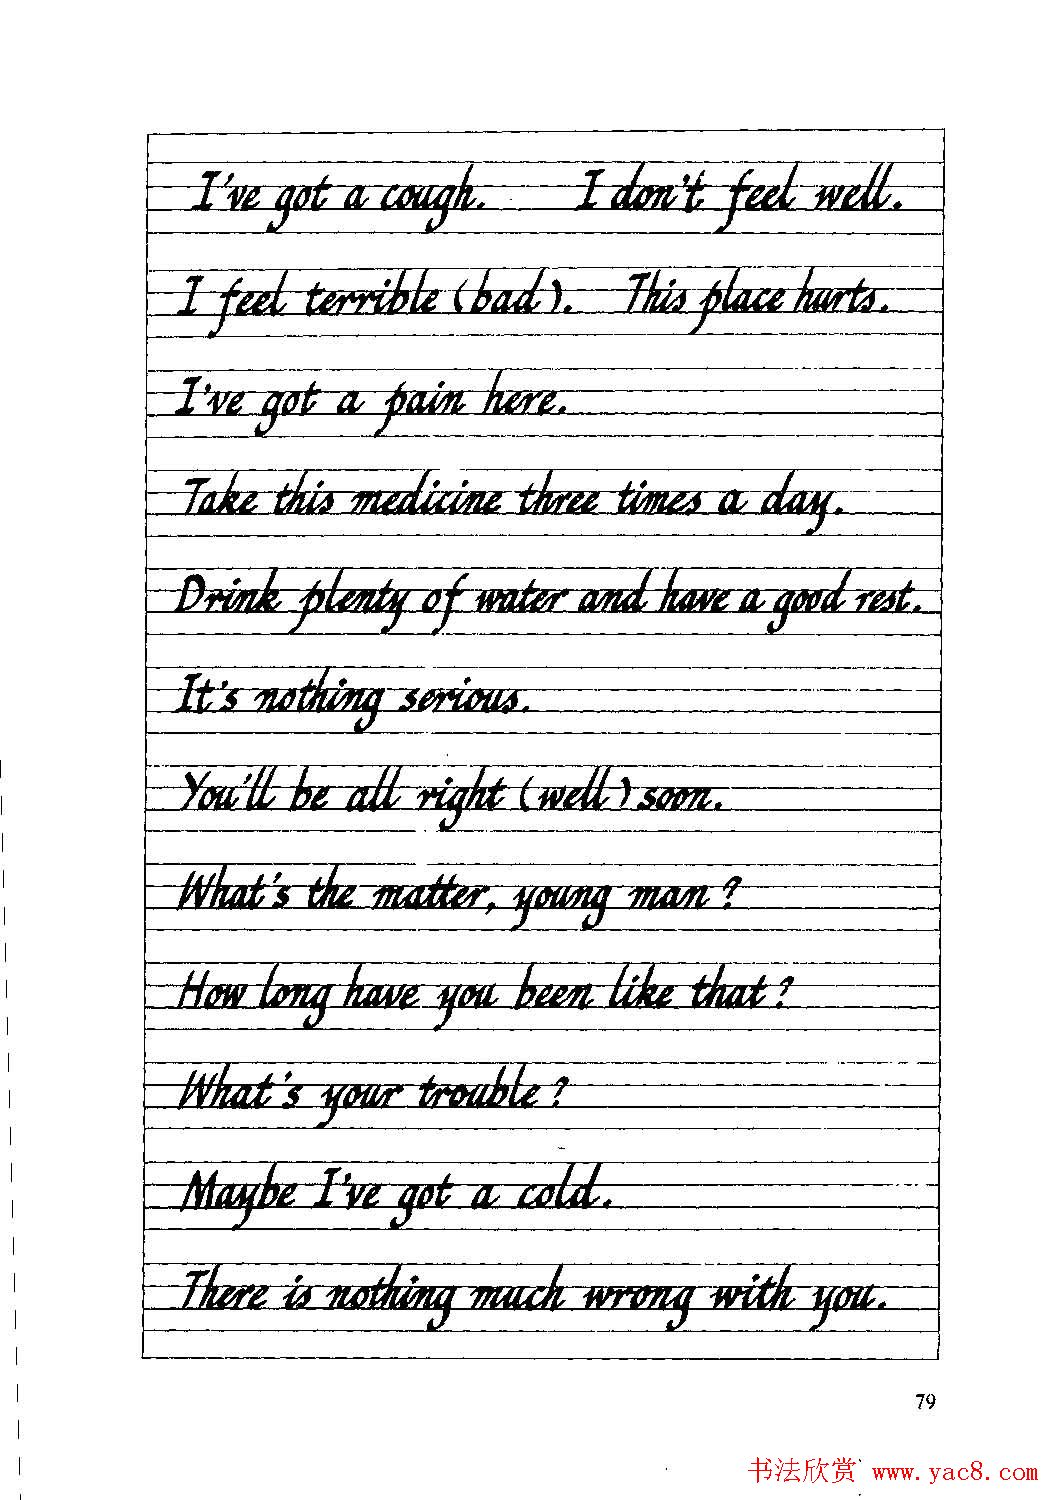 I've got a cough. I don't feel well.
I feel terrible (bad). This place hurts.
I've got a pain here.
Take this medicine three times a day.
Drink plenty of water and have a good rest.
It's nothing serious.
You'll be all right (well) soon.
What's the matter, young man?
How long have you been like that?
What's your trouble?
Maybe I've got a cold.
There is nothing much wrong with you.
79
书法欣赏 www.yac8.com